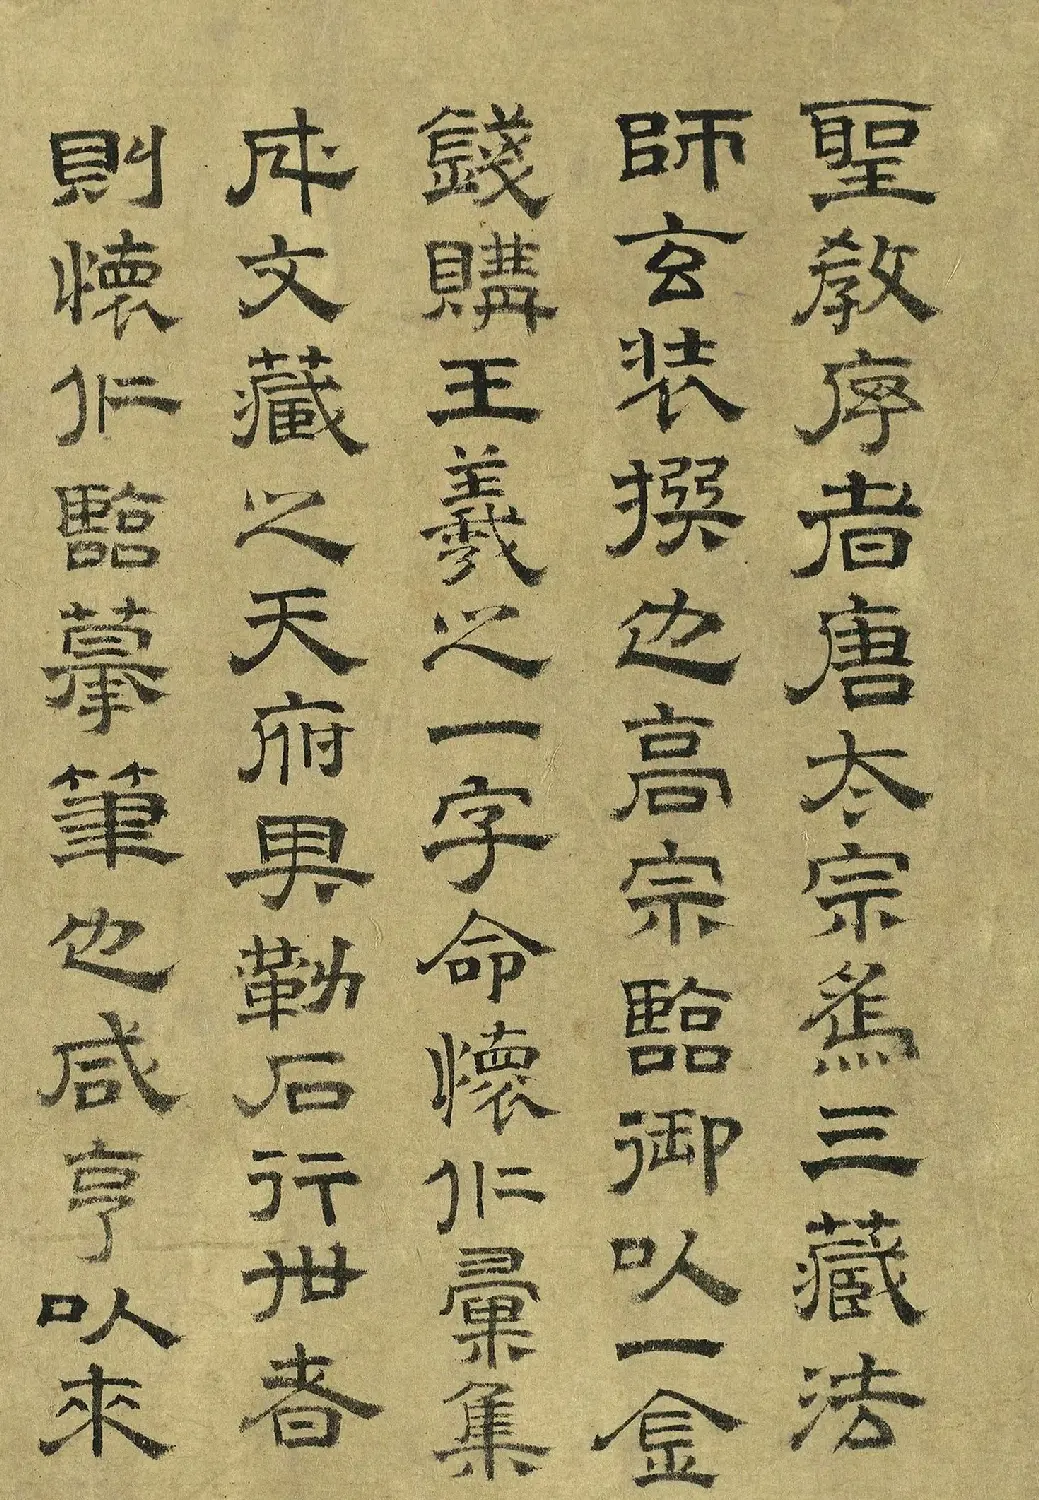 聖教序者唐太宗為三藏法
師玄裝撰也高宗臨御以一金
錢購王羲之一字命懷仁彙集
成文藏之天府其勒石行世者
則懷仁臨摹筆也咸亨以來